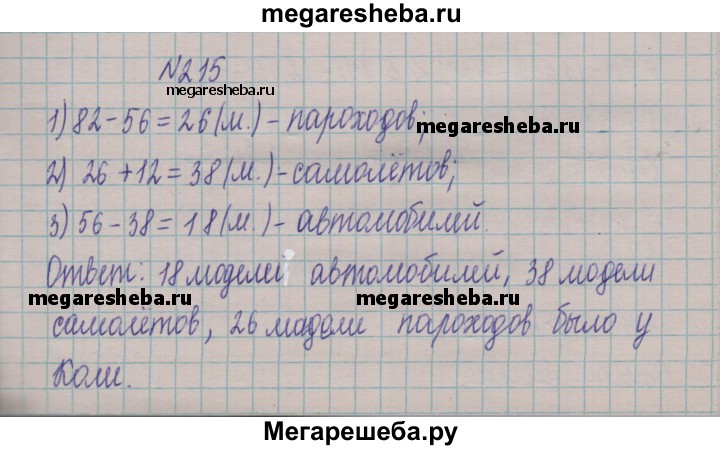 megaresheba.ru
№215
megaresheba.ru
1) 82-56=26(м.)-пароходов;
megaresheba.ru
2) 26+12=38(м.)-самолётов;
3) 56-38=18(м.)-автомобилей.
Ответ: 18 моделей автомобилей, 38 модели
megaresheba.ru megaresheba.ru
самолётов, 26 мадели пароходов было у
Коли.
Мегарешеба.ру